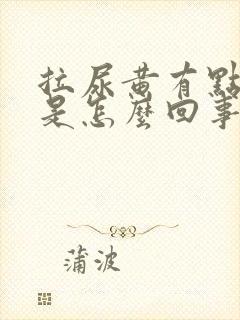 拉尿黄有點
是怎麼回事
蒲波